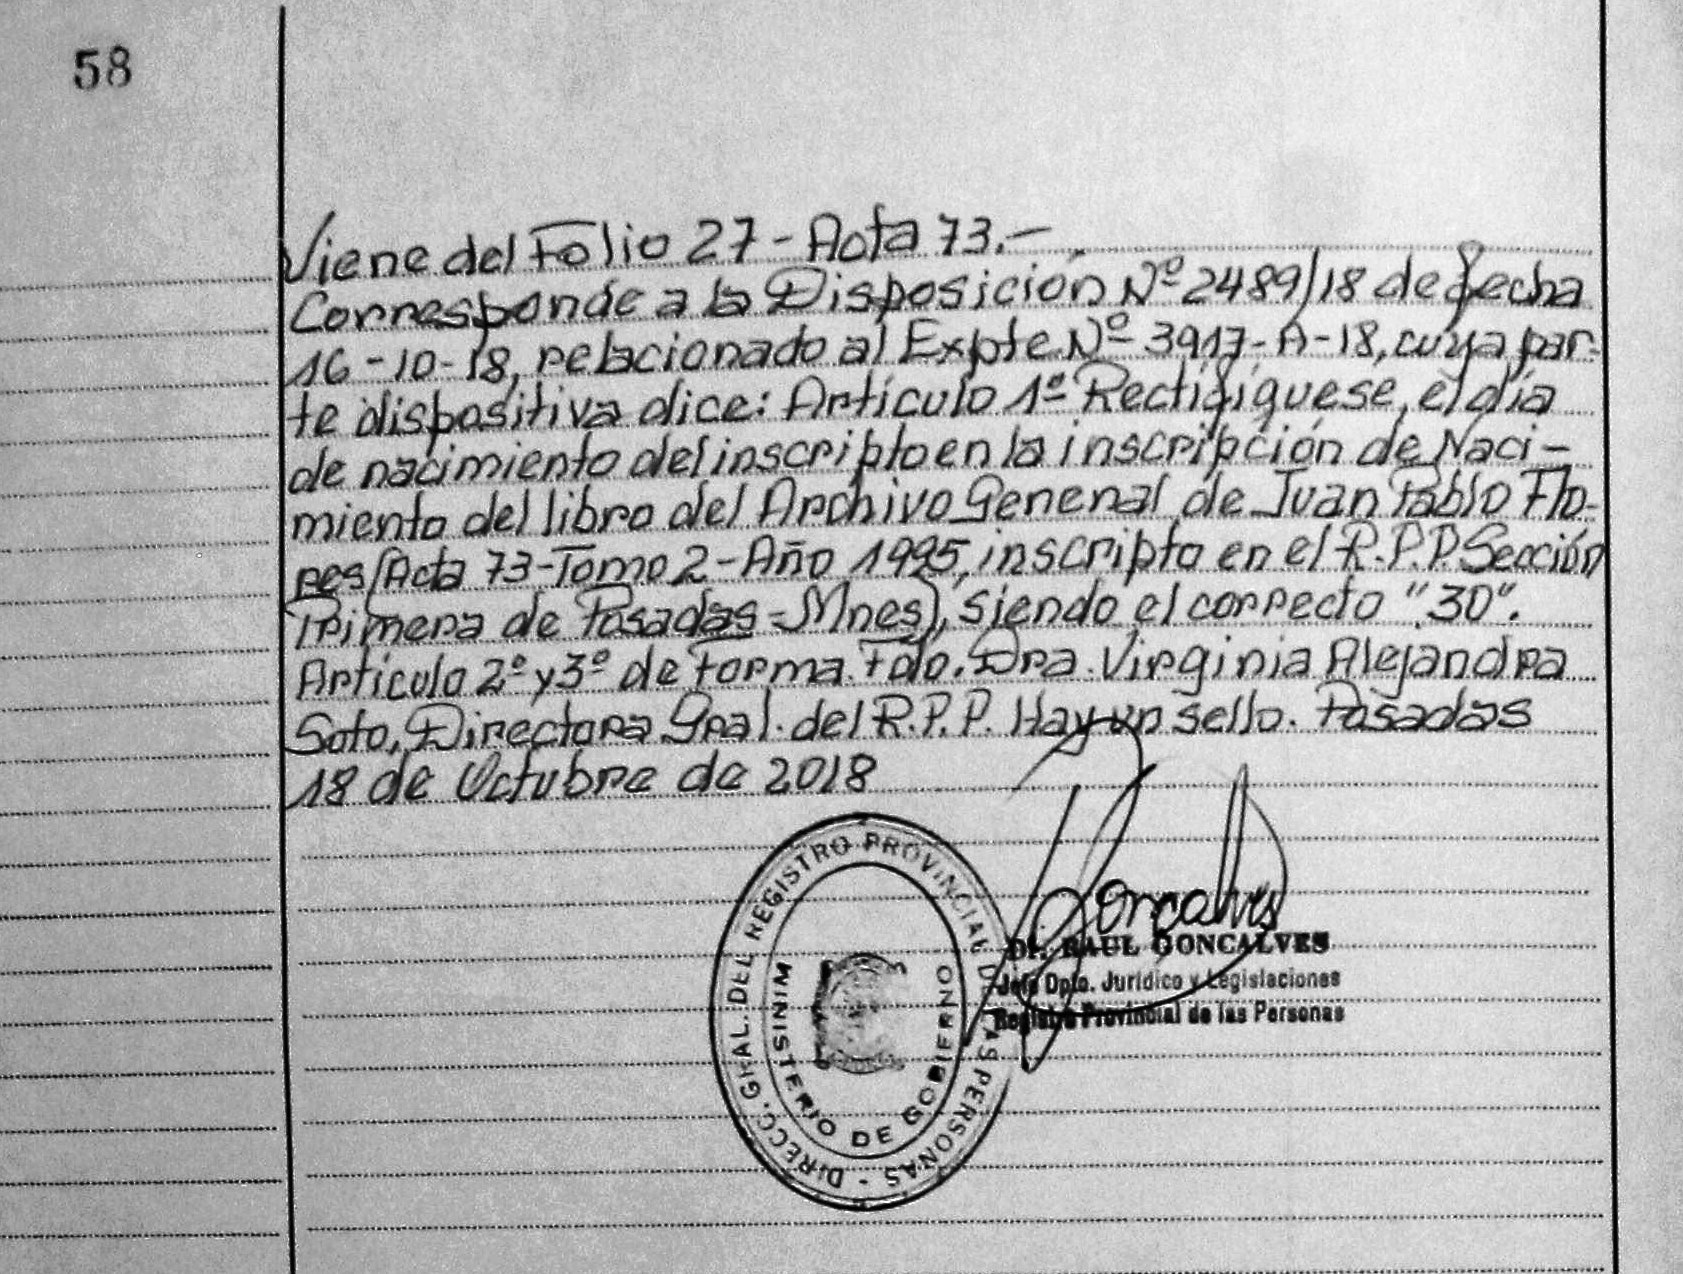 58
Viene del Folio 27 - Acta 73.-
Corresponde a la Disposición Nº 2489/18 de fecha
16-10-18, relacionado al Expte Nº 3917-A-18, cuya par-
te dispositiva dice: Artículo 1º Rectifíquese, el día
de nacimiento del inscripto en la inscripción de Naci-
miento del libro del Archivo General de Juan Pablo Flo-
res (Acta 73-Tomo 2-Año 1995, inscripto en el R.P.P. Sección
Primera de Posadas-Mnes), siendo el correcto "30".
Artículo 2º y 3º de Forma. Fdo. Dra. Virginia Alejandra
Soto, Directora Gral. del R.P.P. Hay un sello. Posadas
18 de Octubre de 2018
DIRECC. GRAL. DEL REGISTRO PROVINCIAL DE LAS PERSONAS -
MINISTERIO DE GOBIERNO
Goncalves
Dr. RAUL GONCALVES
Jefe Dpto. Jurídico y Legislaciones
Registro Provincial de las Personas